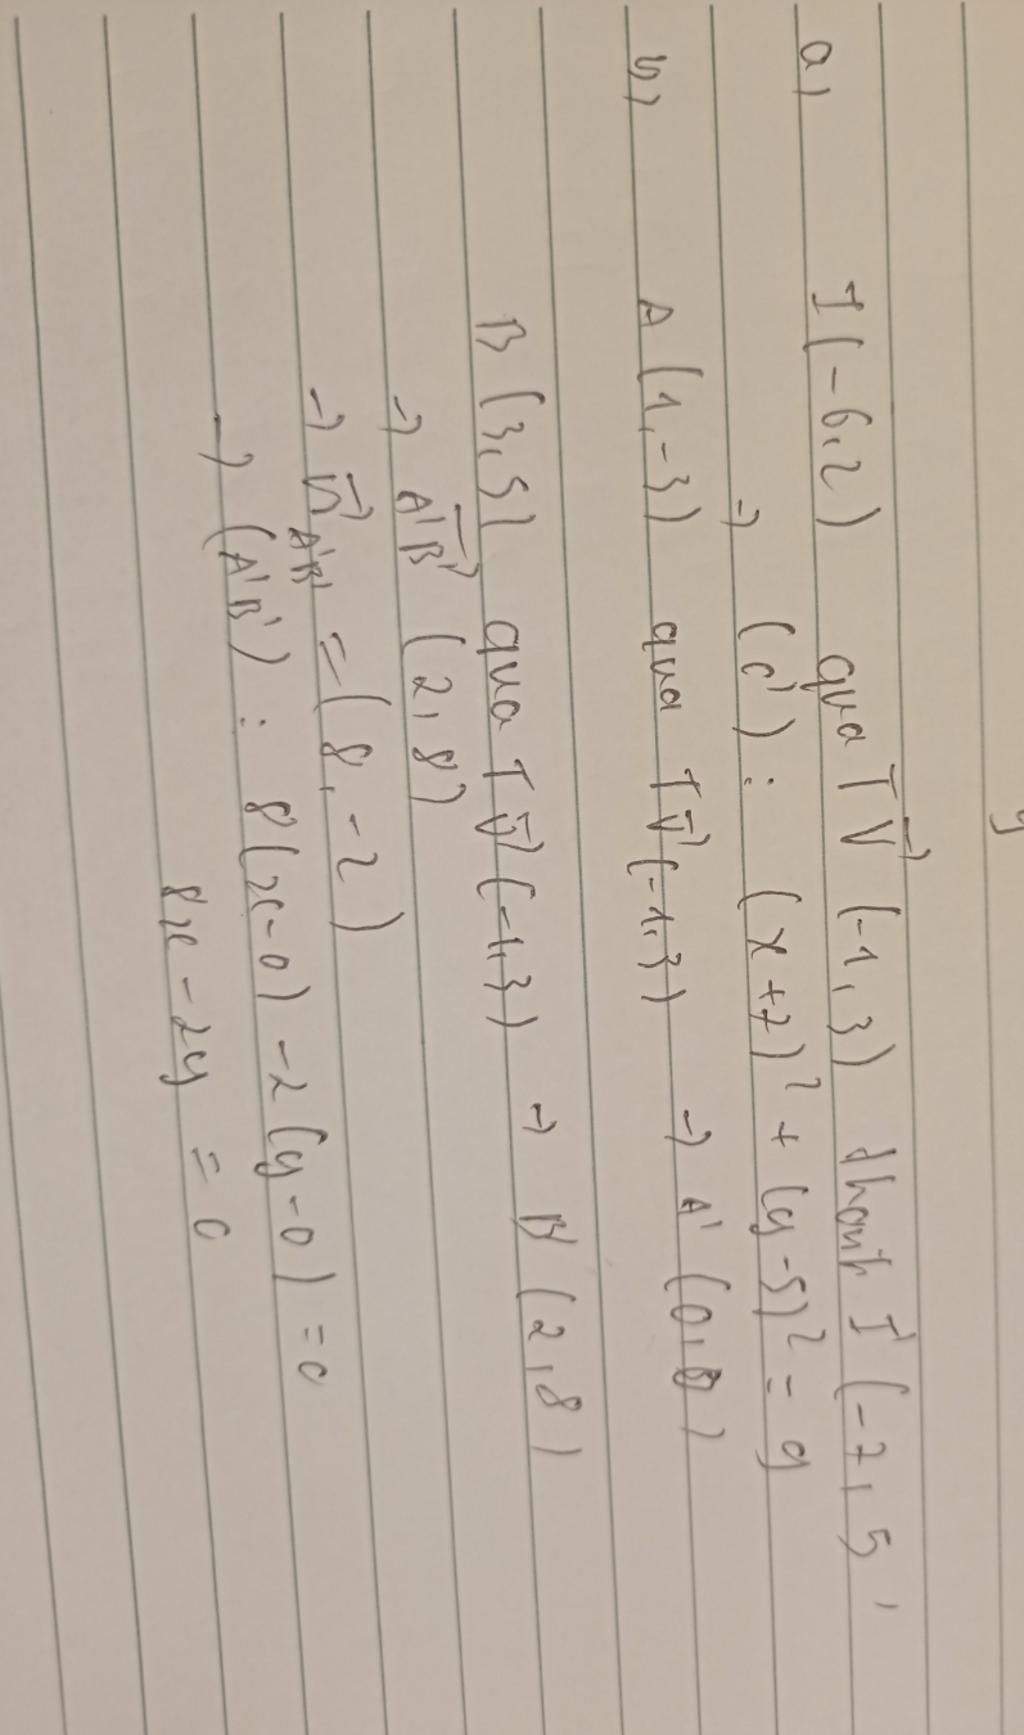 a, I (-6,2) qua T V→ (-1, 3) thành I' (-7, 5
→ (C') : (x + 7)² + (y - 5)² = 9
b, A (1, -3) qua T v→ (-1, 3) → A' (0, 0)
B (3, 5) qua T v→ (-1, 3) → B' (2, 8)
→ A'B'→ (2, 8)
→ n→ A'B' = (8, -2)
→ (A'B') : 8(x - 0) - 2(y - 0) = 0
8x - 2y = 0